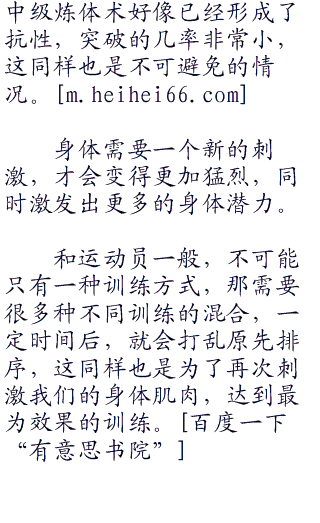 中级炼体术好像已经形成了
抗性，突破的几率非常小，
这同样也是不可避免的情
况。[m.heihei66.com]
身体需要一个新的刺
激，才会变得更加猛烈，同
时激发出更多的身体潜力。
和运动员一般，不可能
只有一种训练方式，那需要
很多种不同训练的混合，一
定时间后，就会打乱原先排
序，这同样也是为了再次刺
激我们的身体肌肉，达到最
为效果的训练。[百度一下
“有意思书院”]